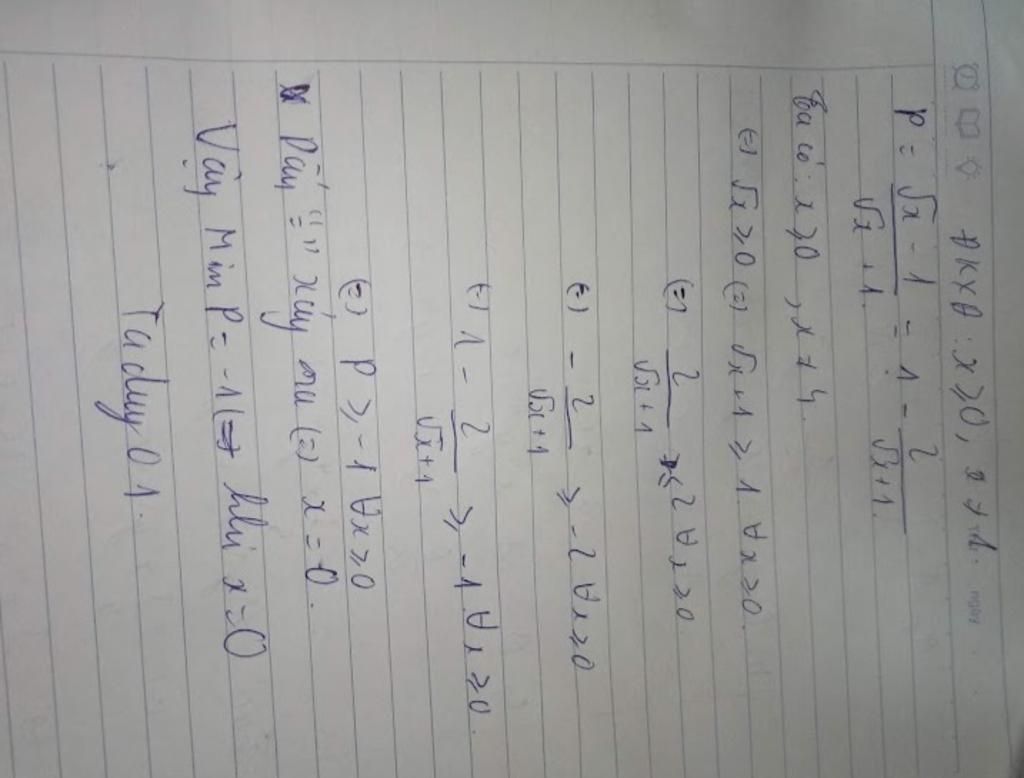 ĐKXĐ: x ≥ 0, x ≠
P = \frac{√x - 1}{√x + 1} = 1 - \frac{2}{√x + 1}.
Ta có: x ≥ 0, x ≠ 4.
(=) √x ≥ 0 (=) √x + 1 ≥ 1 ∀x ≥ 0.
(=) \frac{2}{√x + 1} ≤ 2 ∀x ≥ 0
(=) - \frac{2}{√x + 1} ≥ -2 ∀x ≥ 0
(=) 1 - \frac{2}{√x + 1} ≥ -1 ∀x ≥ 0.
(=) P ≥ -1 ∀x ≥ 0
Dấu "=" xảy ra (=) x = 0.
Vậy Min P = -1 (=) khi x = 0
Taduy01.